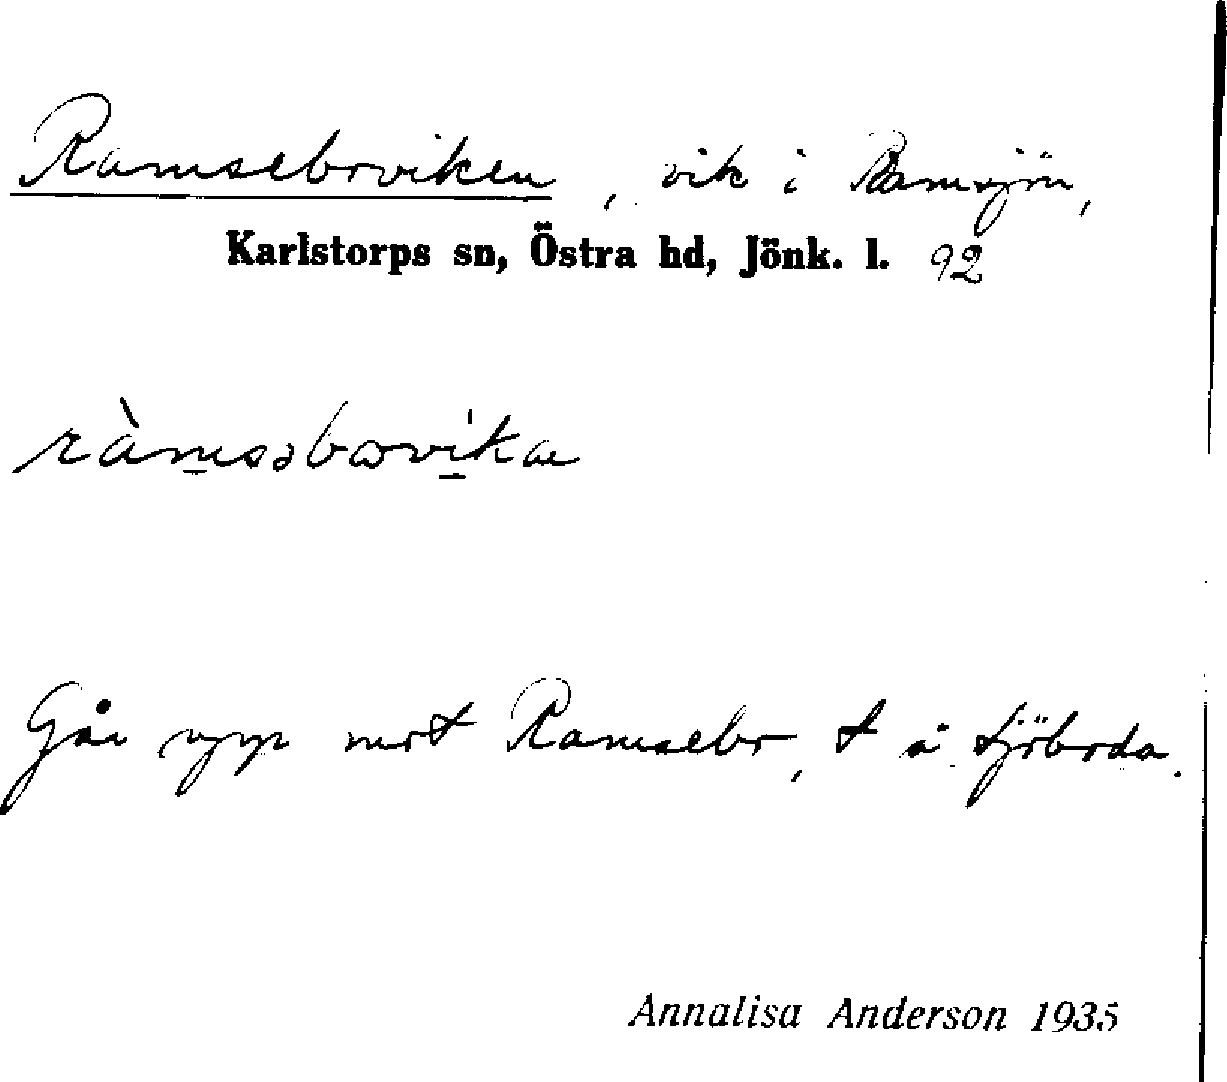 Ramseboviken, vik i Ramsjön,
Karlstorps sn, Östra hd, Jönk. l. 92
Går upp mot Ramsebo, t å sjöboda.
Annalisa Anderson 1935